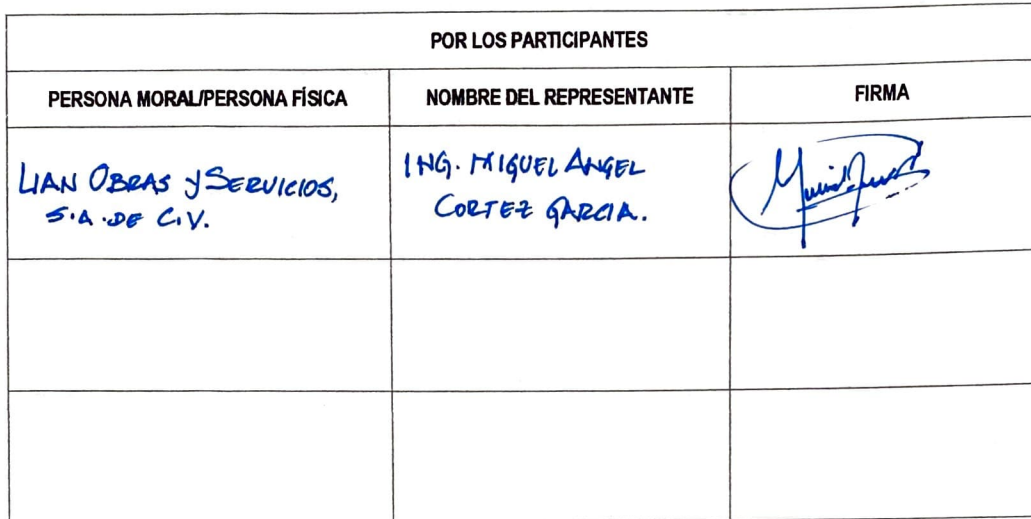 POR LOS PARTICIPANTES
PERSONA MORAL/PERSONA FÍSICA
NOMBRE DEL REPRESENTANTE
FIRMA
LIAN OBRAS Y SERVICIOS,
S.A. DE C.V.
ING. MIGUEL ANGEL
CORTEZ GARCIA.